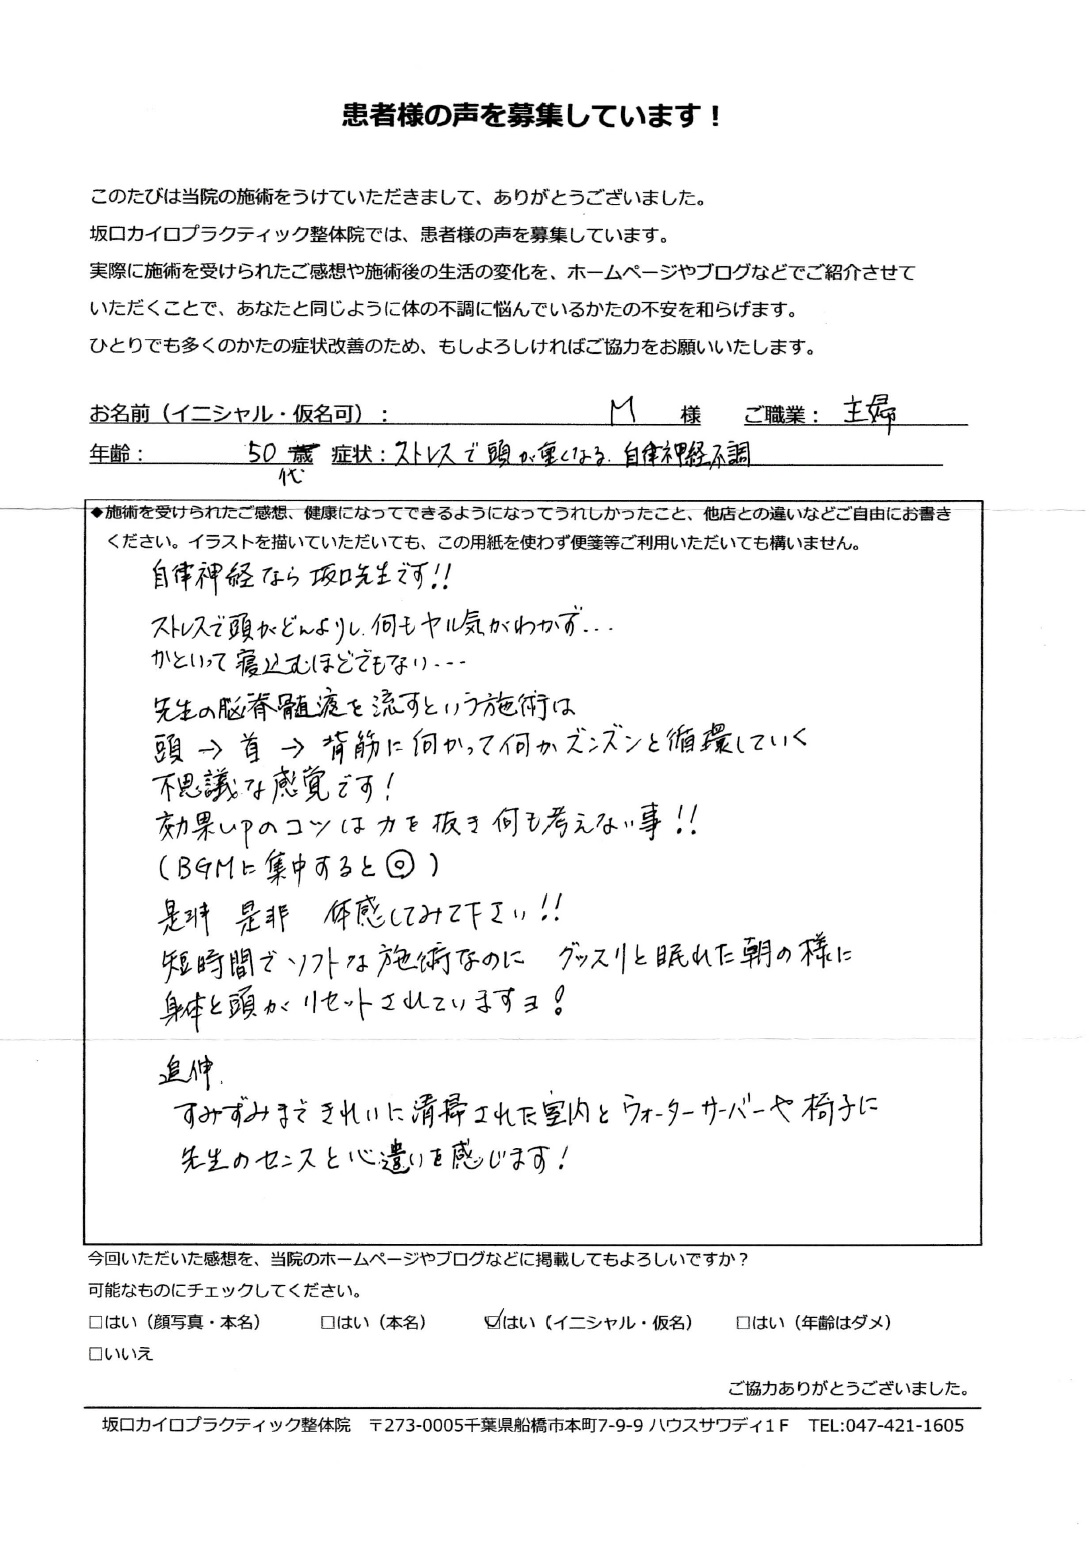 患者様の声を募集しています！
このたびは当院の施術をうけていただきまして、ありがとうございました。
坂口カイロプラクティック整体院では、患者様の声を募集しています。
実際に施術を受けられたご感想や施術後の生活の変化を、ホームページやブログなどでご紹介させて
いただくことで、あなたと同じように体の不調に悩んでいるかたの不安を和らげます。
ひとりでも多くのかたの症状改善のため、もしよろしければご協力をお願いいたします。
お名前（イニシャル・仮名可）： M 様 ご職業： 主婦
年齢： 50 歳 症状：ストレスで頭が重くなる. 自律神経不調
代
◆施術を受けられたご感想、健康になってできるようになってうれしかったこと、他店との違いなどご自由にお書き
ください。イラストを描いていただいても、この用紙を使わず便箋等ご利用いただいても構いません。
自律神経なら坂口先生です!!
ストレスで頭がどんよりし、何もヤル気がわかず...
かといって寝込むほどでもない...
先生の脳脊髄液を流すという施術は
頭→首→背筋に向かって何かズンズンと循環していく
不思議な感覚です!
効果upのコツは力を抜き何も考えない事!!
（BGMに集中すると◎）
是非 是非 体感してみて下さい!!
短時間でソフトな施術なのに グッスリと眠れた朝の様に
身体と頭がリセットされていますヨ!
追伸.
すみずみまできれいに清掃された室内とウォーターサーバーや椅子に
先生のセンスと心遣いを感じます!
今回いただいた感想を、当院のホームページやブログなどに掲載してもよろしいですか？
可能なものにチェックしてください。
□はい（顔写真・本名） □はい（本名） ☑はい（イニシャル・仮名） □はい（年齢はダメ）
□いいえ
ご協力ありがとうございました。
坂口カイロプラクティック整体院 〒273-0005千葉県船橋市本町7-9-9 ハウスサワディ1F TEL:047-421-1605